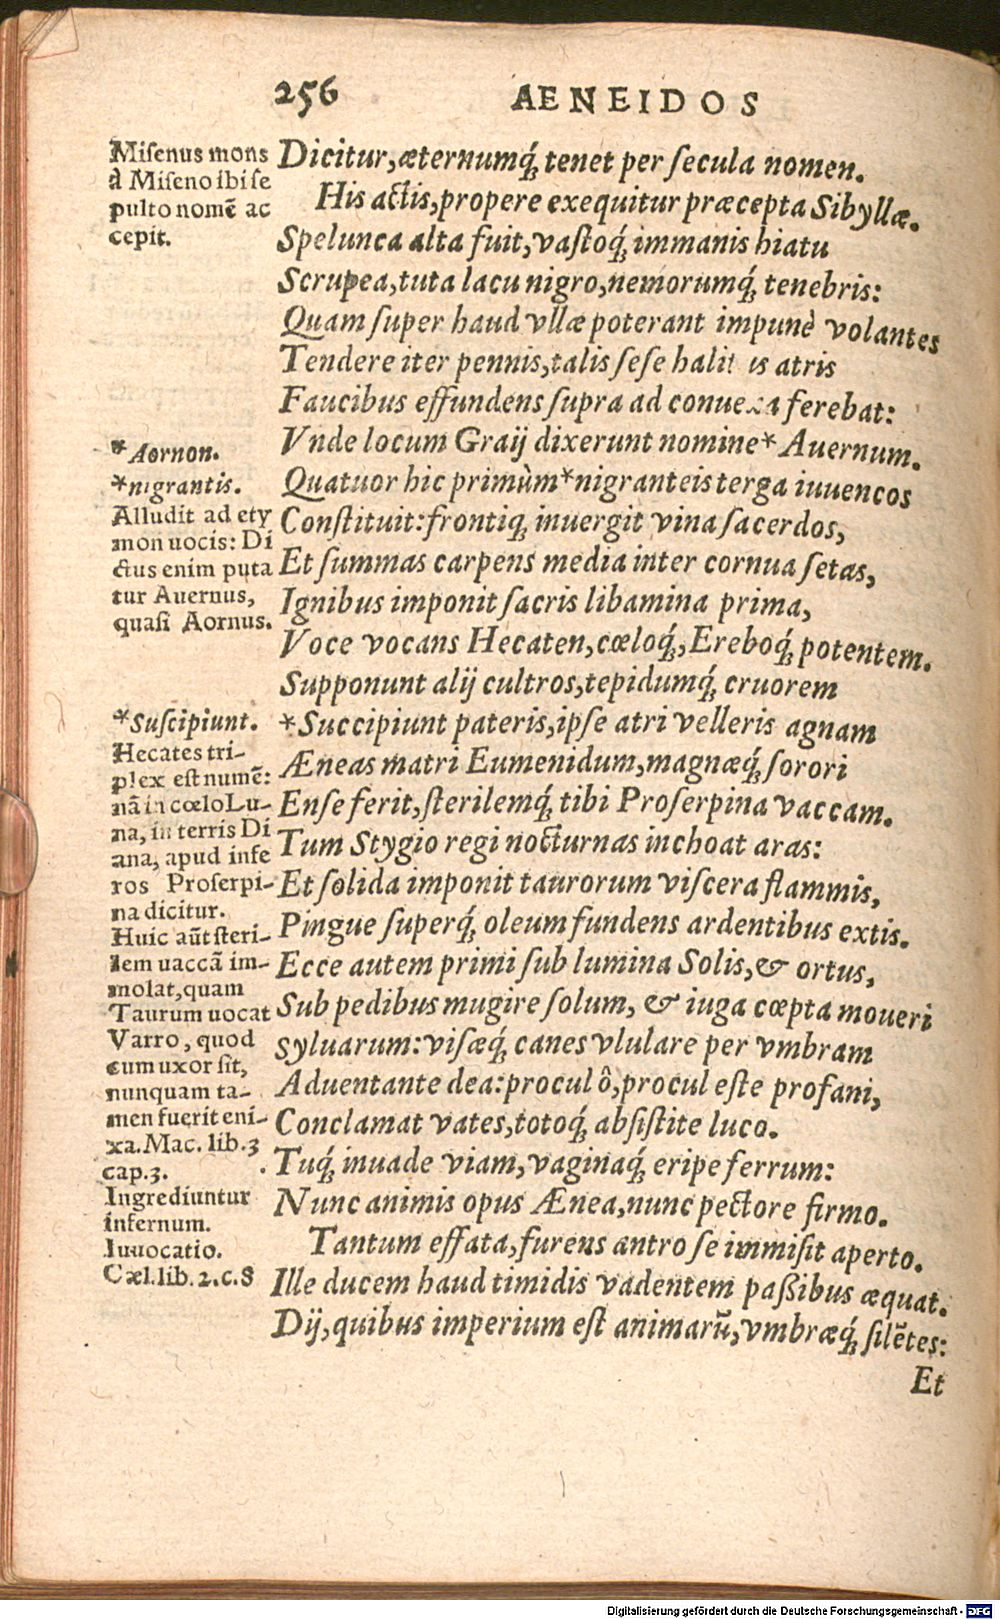 256 AENEIDOS
Misenus mons
à Miseno ibi se
pulto nomē ac
cepit.
Dicitur, æternumq́; tenet per secula nomen.
His actis, propere exequitur præcepta Sibyllæ.
Spelunca alta fuit, vastoq́; immanis hiatu
Scrupea, tuta lacu nigro, nemorumq́; tenebris:
Quam super haud vllæ poterant impunè volantes
Tendere iter pennis, talis sese halitus atris
Faucibus effundens supra ad conuexa ferebat:
Vnde locum Graij dixerunt nomine* Auernum.
Quatuor hic primùm*nigranteis terga iuuencos
Constituit: frontiq́; inuergit vina sacerdos,
Et summas carpens media inter cornua setas,
Ignibus imponit sacris libamina prima,
Voce vocans Hecaten, cœloq́;, Ereboq́; potentem.
Supponunt alij cultros, tepidumq́; cruorem
*Succipiunt pateris, ipse atri velleris agnam
Æneas matri Eumenidum, magnæq́; sorori
Ense ferit, sterilemq́; tibi Proserpina vaccam.
Tum Stygio regi nocturnas inchoat aras:
Et solida imponit taurorum viscera flammis,
Pingue superq́; oleum fundens ardentibus extis.
Ecce autem primi sub lumina Solis, & ortus,
Sub pedibus mugire solum, & iuga cœpta moueri
syluarum: visæq́; canes vlulare per vmbram
Aduentante dea: procul ô, procul este profani,
Conclamat vates, totoq́; absistite luco.
Tuq́; inuade viam, vaginaq́; eripe ferrum:
Nunc animis opus Ænea, nunc pectore firmo.
Tantum effata, furens antro se immisit aperto.
Ille ducem haud timidis vadentem paßibus æquat.
Dij, quibus imperium est animarū, vmbræq́; silētes:
Et
*Aornon.
*nigrantis.
Alludit ad ety
mon uocis: Di
ctus enim puta
tur Auernus,
quasi Aornus.
*Suscipiunt.
Hecates tri-
plex est numē:
nā in cœlo Lu-
na, in terris Di
ana, apud infe
ros Proserpi-
na dicitur.
Huic aūt steri-
lem uaccā im-
molat, quam
Taurum uocat
Varro, quod
cum uxor sit,
nunquam ta-
men fuerit eni-
xa. Mac. lib. 3
cap. 3.
Ingrediuntur
infernum.
Inuocatio.
Cæl. lib. 2. c. 8
Digitalisierung gefördert durch die Deutsche Forschungsgemeinschaft - DFG